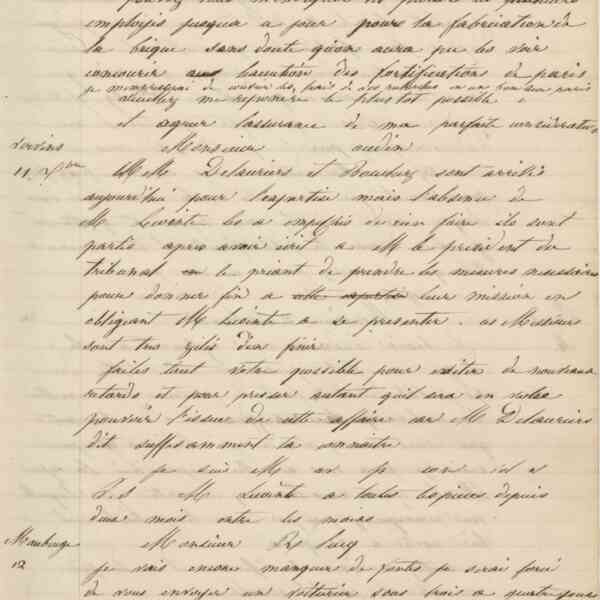 employés jusqu'a a jour pour la fabrication de
la brique sans doute qu'on aura pu les voir
concourir a l'exécution des fortifications de paris
je m'empresserai de
veuillez me repondre le plus tot possible
et agreer l'assurance de ma parfaite consideration
Vervins Monsieur oudin
11 7bre M M Delauriers et Bauchez sont arrivés
aujourd'hui pour l'expertise mais l'absence de
M Lecointe les a empechés de rien faire ils sont
partis apres avoir écrit a M le president du
tribunal en le priant de prendre les mesures necessaires
pour donner fin a cette expertise leur mission en
obligeant M Lecointe a se presenter. ces Messieurs
sont tres zelés d'en finir
faites tout votre possible pour eviter de nouveaux
retards et pour presser autant qu'il sera en votre
pouvoir l'issue de cette affaire car M Delauriers
dit suffisamment la connaitre
je suis M av p con
P.S M Lecointe a toutes les pieces depuis
deux mois entre les mains
Maubeuge Monsieur
12 je vais encore manquer de fontes je serai forcé
de vous envoyer un voiturier sous trois a quatre jours